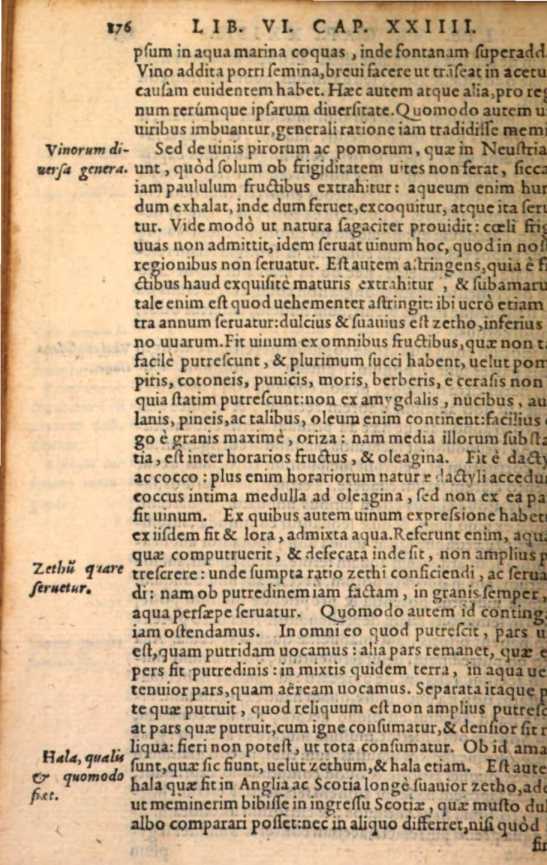 176 LIB. VI. CAP. XXIIII.
pſum in aqua marina coquas, inde fontanam superadd
Vino addita porri ſemina, breui facere ut trāſeat in acetu
cauſam euidentem habet. Hæc autem atque alia, pro reg
num rerúmque ipſarum diuerſitate. Quomodo autem u
uiribus imbuantur, generali ratione iam tradidiſſe memi
Vinorum di-
uerſa genera.
Sed de uinis pirorum ac pomorum, quæ in Neuſtria
unt, quòd ſolum ob frigiditatem uites non ferat, ſicca
iam paululum fructibus extrahitur: aqueum enim hu
dum exhalat, inde dum feruet, excoquitur, atque ita ſeru
tur. Vide modò ut natura ſagaciter prouidit: cœli frig
uuas non admittit, idem ſeruat uinum hoc, quod in no
regionibus non ſeruatur. Eſt autem aſtringens, quia è f
ctibus haud exquiſitè maturis extrahitur, & ſubamaru
tale enim eſt quod uehementer aſtringit: ibi uerò etiam
tra annum ſeruatur: dulcius & ſuauius eſt zetho, inferius
no uuarum. Fit uinum ex omnibus fructibus, quæ non t
facilè putreſcunt, & plurimum ſucci habent, uelut pom
piris, cotoneis, punicis, moris, berberis, è ceraſis non
quia ſtatim putreſcunt: non ex amygdalis, nucibus, au
lanis, pineis, ac talibus, oleum enim continent: facilius
go è granis maximè, oriza: nam media illorum ſubſta
tia, eſt inter horarios fructus, & oleagina. Fit è dacty
ac cocco: plus enim horariorum naturæ dactyli accedu
coccus intima medulla ad oleagina, ſed non ex ea pa
fit uinum. Ex quibus autem uinum expreſſione habet
ex iiſdem fit & lora, admixta aqua. Referunt enim, aqua
quæ computruerit, & defecata inde ſit, non amplius p
Zethū quare
ſeruetur.
treſcere: unde ſumpta ratio zethi conficiendi, ac ſerua
di: nam ob putredinem iam factam, in granis ſemper,
aqua perſæpe ſeruatur. Quomodo autem id conting
iam oſtendamus. In omni eo quod putreſcit, pars u
eſt, quam putridam uocamus: alia pars remanet, quæ e
pers fit putredinis: in mixtis quidem terra, in aqua ue
tenuior pars, quam aëream uocamus. Separata itaque p
te quæ putruit, quod reliquum eſt non amplius putreſc
at pars quæ putruit, cum igne conſumatur, & denſior ſit r
liqua: fieri non poteſt, ut tota conſumatur. Ob id ama
Hala, qualis
& quomodo
fiat.
ſunt, quæ ſic fiunt, uelut zethum, & hala etiam. Eſt aute
hala quæ fit in Anglia ac Scotia longè ſuauior zetho, ade
ut meminerim bibiſſe in ingreſſu Scotiæ, quæ muſto du
albo comparari poſſet: nec in aliquo differret, niſi quòd
fir